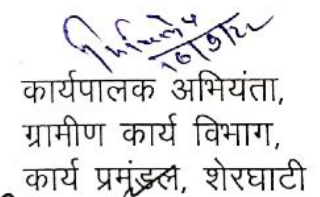 कार्यपालक अभियंता,
ग्रामीण कार्य विभाग,
कार्य प्रमंडल, शेरघाटी